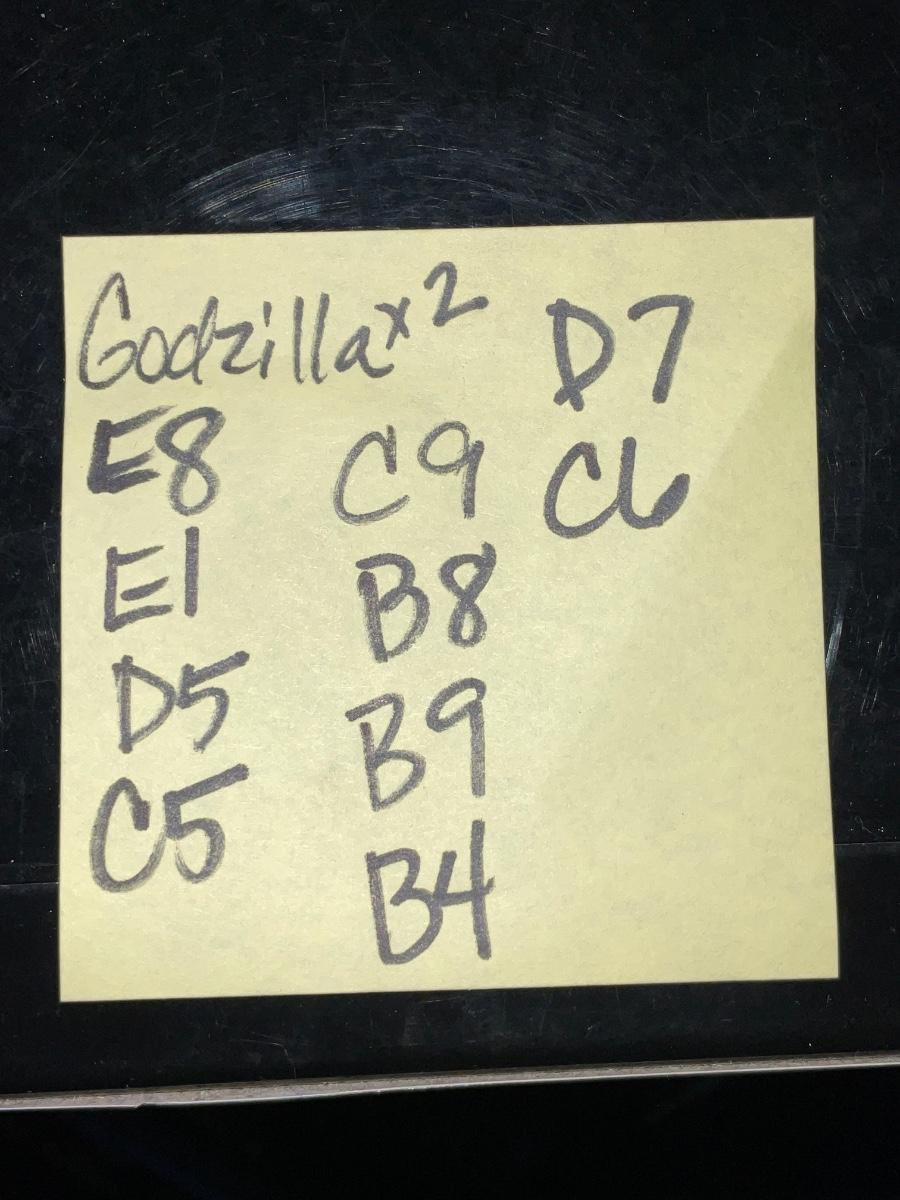 Godzilla x2
E8
E1
D5
C5
C9
B8
B9
B4
D7
C6